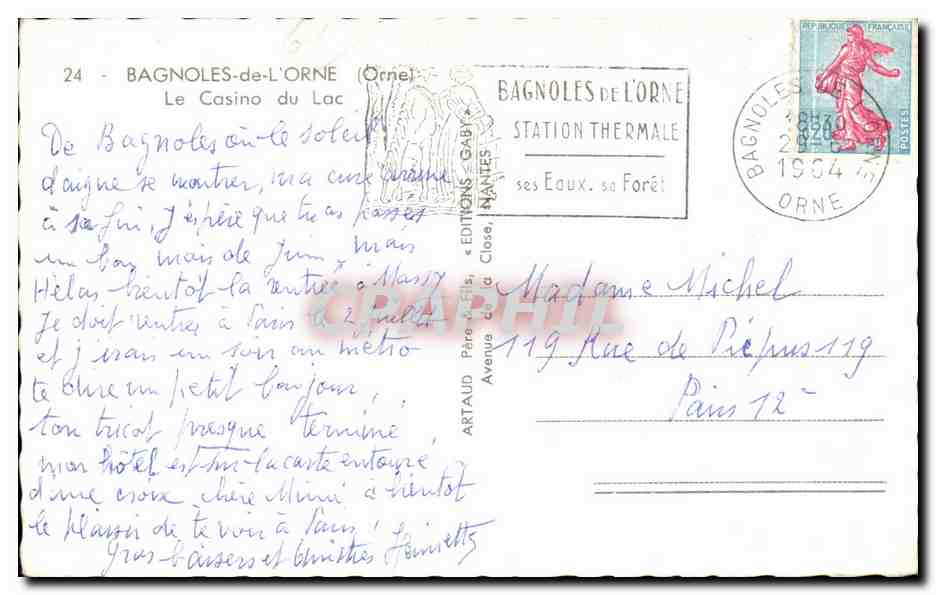 24 - BAGNOLES-de-L'ORNE (Orne)
Le Casino du Lac
De Bagnoles où le soleil
daigne se montrer, ma cure arrive
à sa fin, J'espère que tu as passer
un bon mois de Juin, mais
Hélas bientôt la rentrée à Massy
Je doit rentrer à Paris le 2 Juillet
et j'irais un soir au métro
te dire un petit bonjour,
ton tricot presque terminé,
mon hôtel est sur la carte entouré
d'une croix chère Mimi à bientôt
le plaisir de te voir à Paris,
Gros baisers et
ARTAUD Père & Fils, « EDITIONS GABY »
Avenue de la Close, NANTES
BAGNOLES DE L'ORNE
STATION THERMALE
ses Eaux. sa Forêt
REPUBLIQUE FRANÇAISE
0,20
POSTES
BAGNOLES DE L'ORNE
18H30
1964
ORNE
Madame Michel
119 Rue de Picpus 119
Paris 12e
CRAPHIL